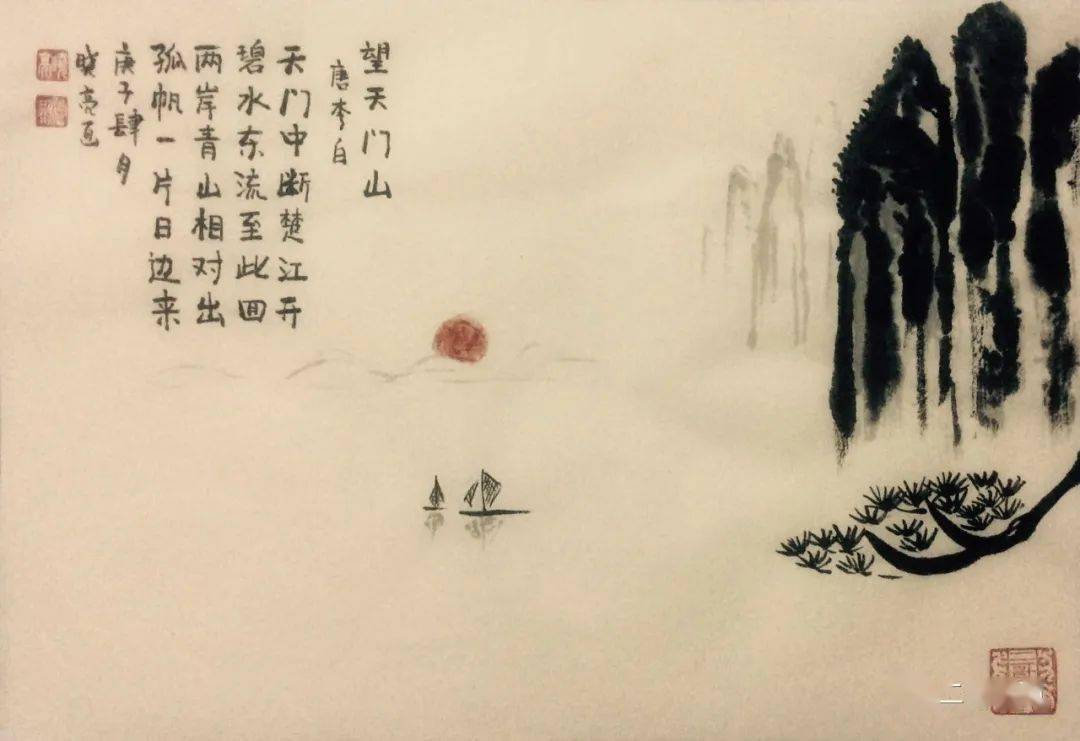 望天门山
唐李白
天门中断楚江开
碧水东流至此回
两岸青山相对出
孤帆一片日边来
庚子肆月
晓亮画